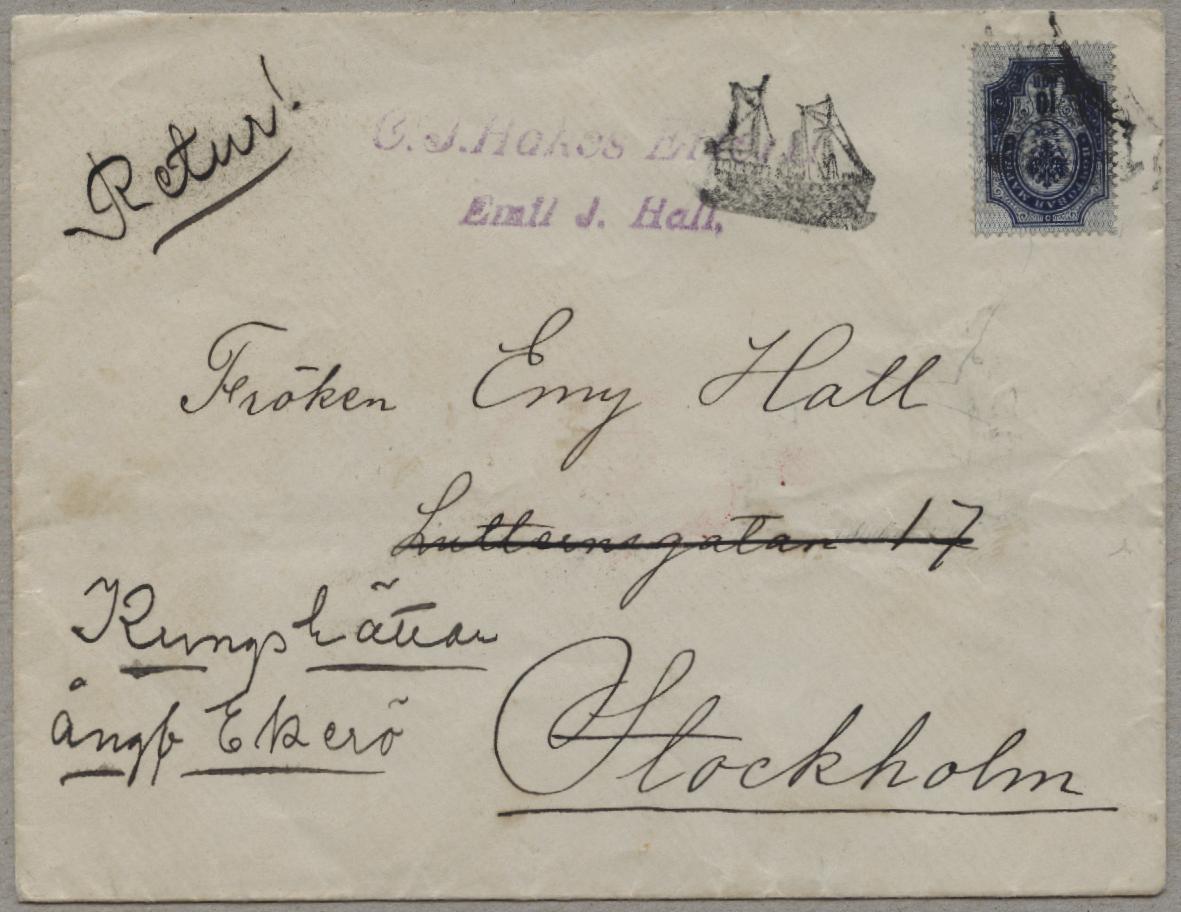 Retur!
C. J. Hakes
Emil J. Hall,
10
Fröken Emy Hall
Lutternsgatan 17
Kungshättan
ångf Ekerö
Stockholm